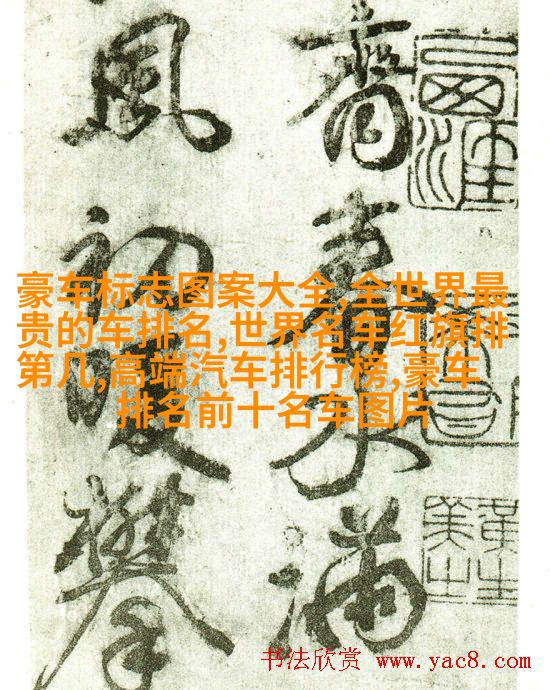 豪车标志图案大全,全世界最
贵的车排名,世界名车红旗排
第几,高端汽车排行榜,豪车
排名前十名车图片
春水滿
風初暖攀
书法欣赏 www.yac8.com